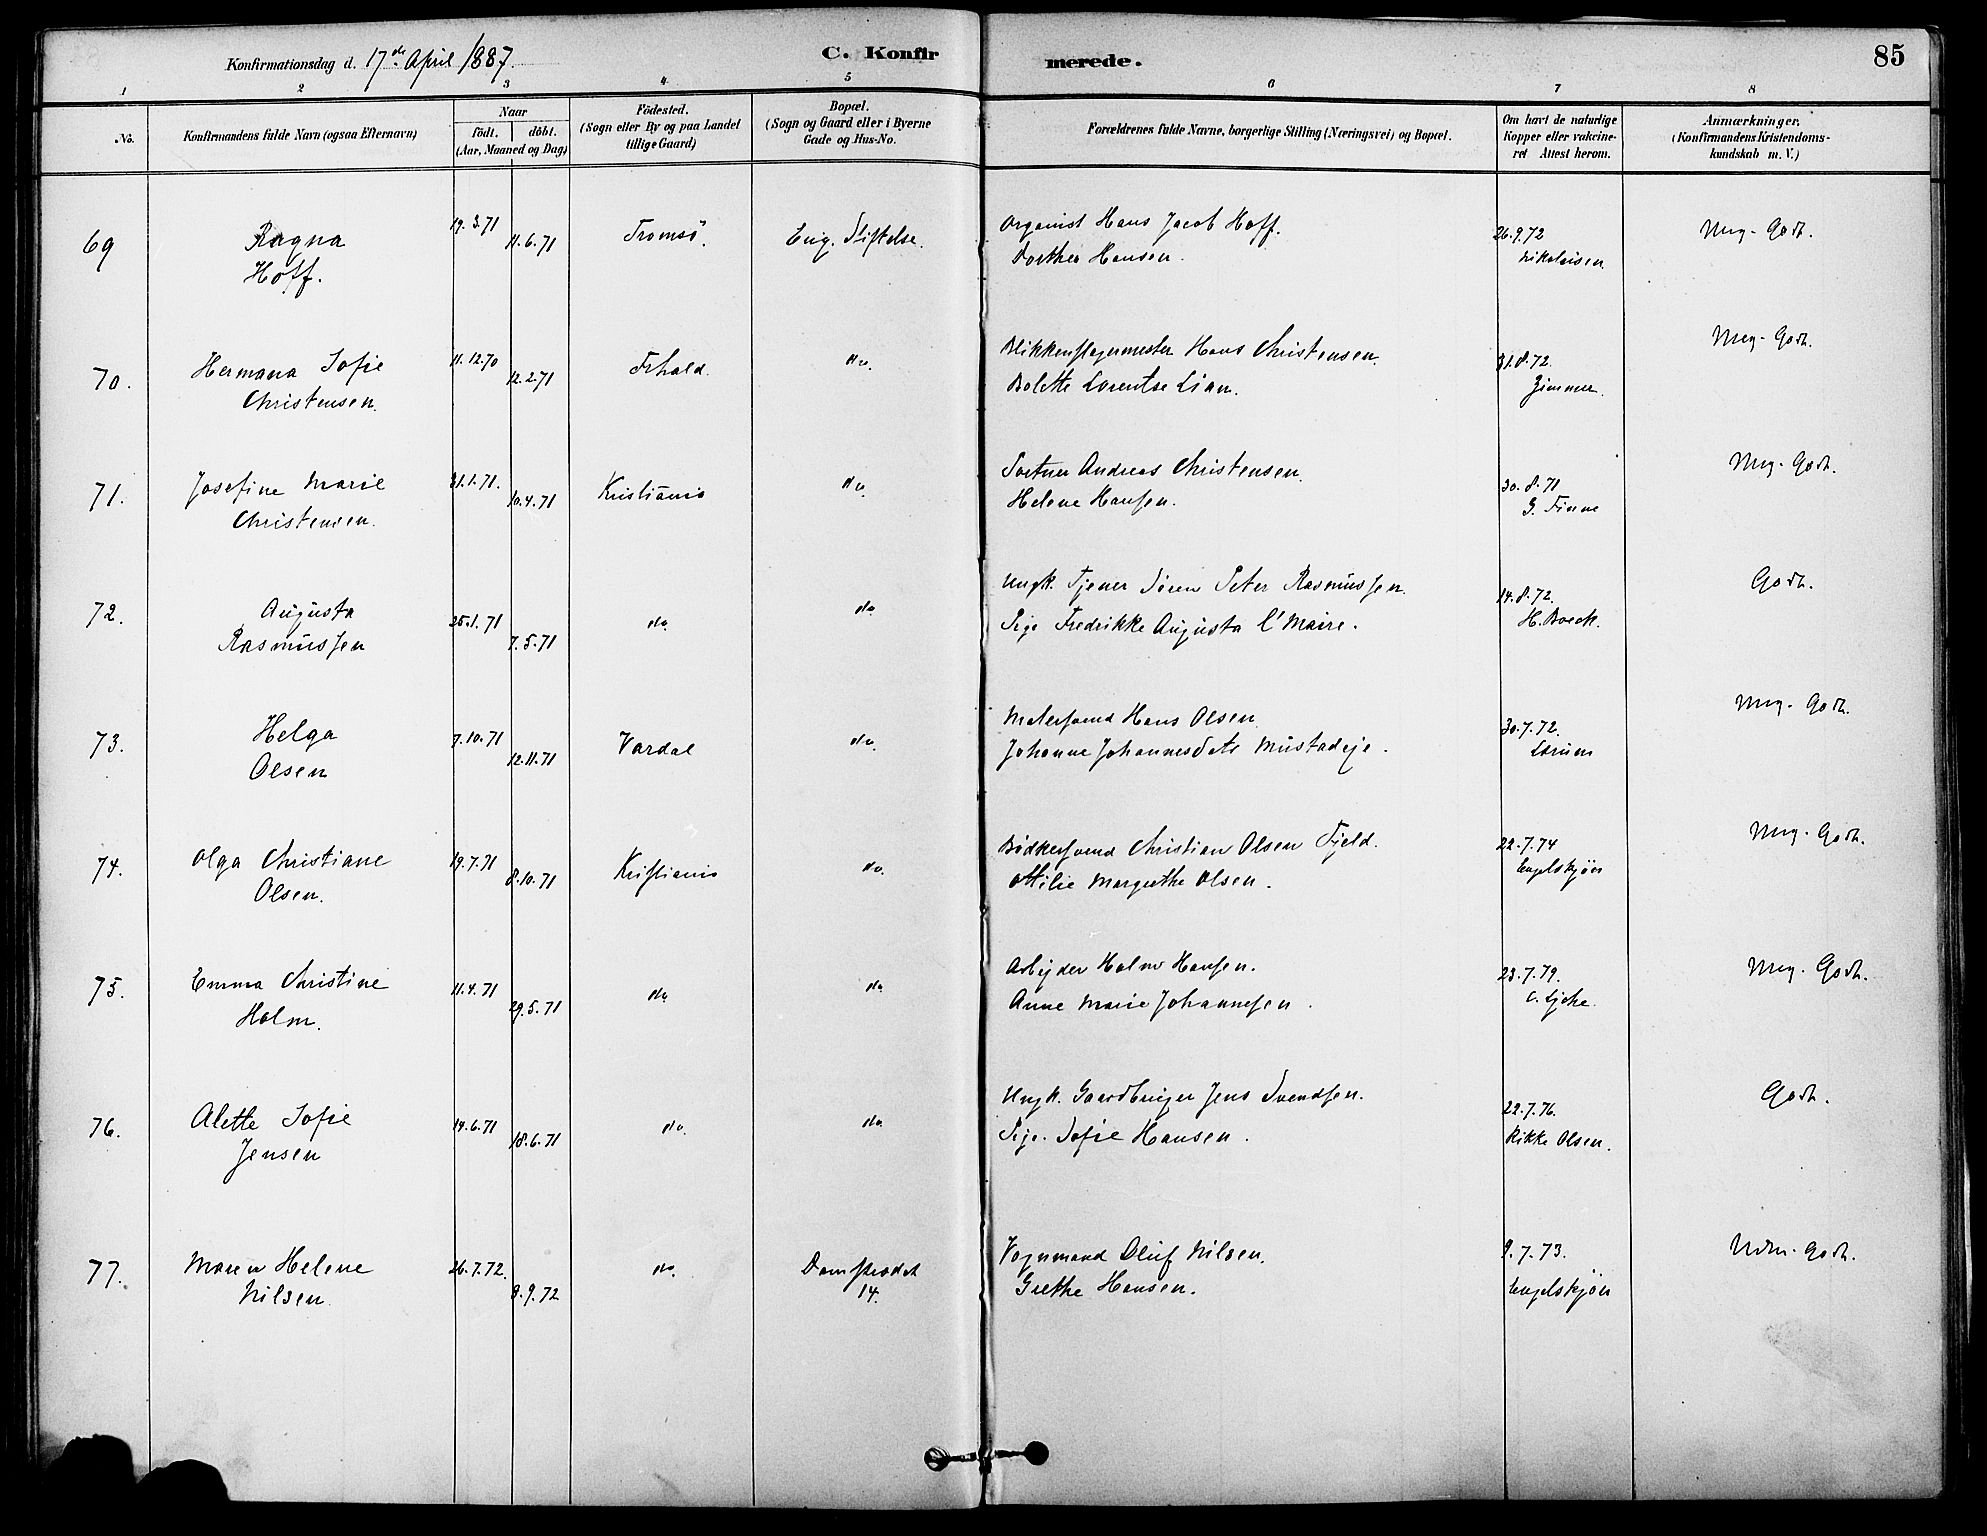 Konfirmationsdag d. 17de April 1887.
C. Konfirmerede.
85
1 2 3 4 5 6 7 8
No.
Konfirmandens fulde Navn (ogsaa Efternavn)
Naar
födt. döbt.
(Aar, Maaned og Dag)
Födested.
(Sogn eller By og paa Landet
tillige Gaard)
Bopæl.
(Sogn og Gaard eller i Byerne
Gade og Hus-No.
Forældrenes fulde Navne, borgerlige Stilling (Næringsvei) og Bopæl.
Om havt de naturlige
Kopper eller vakcine-
ret Attest herom.
Anmærkninger.
(Konfirmandens Kristendoms-
kundskab m. V.)
69 Ragna 19.3.71 11.6.71 Tromsö. Eug. Stiftelse. Organist Hans Jacob Hoff. 26.9.72 Meg. Godt.
Hoff. Dorthea Hansen. Nikolaisen.
70. Hermana Sofie 11.12.70 12.2.71 Frhald. do. Blikkenslagermester Hans Christensen. 31.8.72. Meg. Godt.
Christensen. Bolette Lorentse Lian. Zimmer.
71. Josefine Marie 31.1.71. 10.4.71 Kristiania do. Portner Andreas Christensen. 30.8.71 Meg. Godt.
Christensen. Helene Hansen. G. Finne
72. Augusta 25.1.71 7.5.71 do. do Ungk. Tjener Sören Peter Rasmussen. 14.8.72. Godt.
Rasmussen Pige Fredrikke Augusta l'Maire. H. Boeck.
73. Helga 7.10.71 12.11.71 Vardal do. Malersvend Hans Olsen. 30.7.72. Meg. Godt.
Olsen Johanne Johannesdatr Mustadeje. Lorum
74. Olga Christiane 19.7.71 8.10.71 Kristiania do. Bödkersvend Christian Olsen Fjeld. 22.7.74 Meg. Godt.
Olsen. Ottilie Margrethe Olsen. Engelskjøn
75. Emma Christine 11.4.71 29.5.71 do do Arbejder Holm Hansen. 23.7.79. Meg. Godt.
Holm. Anne Marie Johannesen.
76. Alette Sofie 14.6.71 18.6.71 do. do. Ungk. Gaardbruger Jens Svendsen. 22.7.76. Godt.
Jensen Pige. Sofie Hansen. Rikke Olsen.
77. Maren Helene 26.7.72. 8.9.72 do. Damstrædet Vognmand Oluf Nilsen. 9.7.73. Udm. Godt.
Nilsen. 14. Grethe Hansen. Engelskjøn